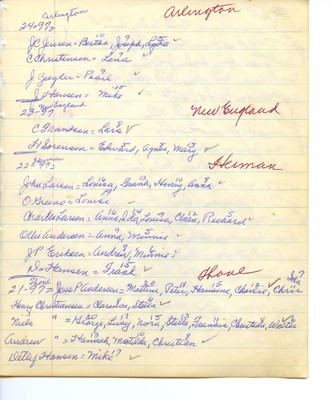 Arlington
Arlington
24-97=
JC Jensen = Bertha, Joseph, Lydia
C Christensen = Lena
J Geagler = Pearl
J Hansen = Mike
New England
New England
23-97
C Frandsen = Lars
H Sorenson = Edward, Agnes, Mary
Herman
Herman
22-97
John Larsen = Louisa, Grant, Henry, Anna
O Bruno = Louise
Charles Larsen = Anna, Ida, Louisa, Clara, Richard
Ollie Andersen = Anna, Minnie
J P Ericksen = Andrew, Minnie
Hansen = Frank
Rose
21-97 = Jens P Andersen = Martine, Peter, Hansine, Charlie, Chris
Harry Christiansen = Clarence, Stella
Niels " = George, Lucy, Nora, Stella, Christian, Walter
Andrew " = Hannah, Matilda, Christian
Detlef Hansen = Mike